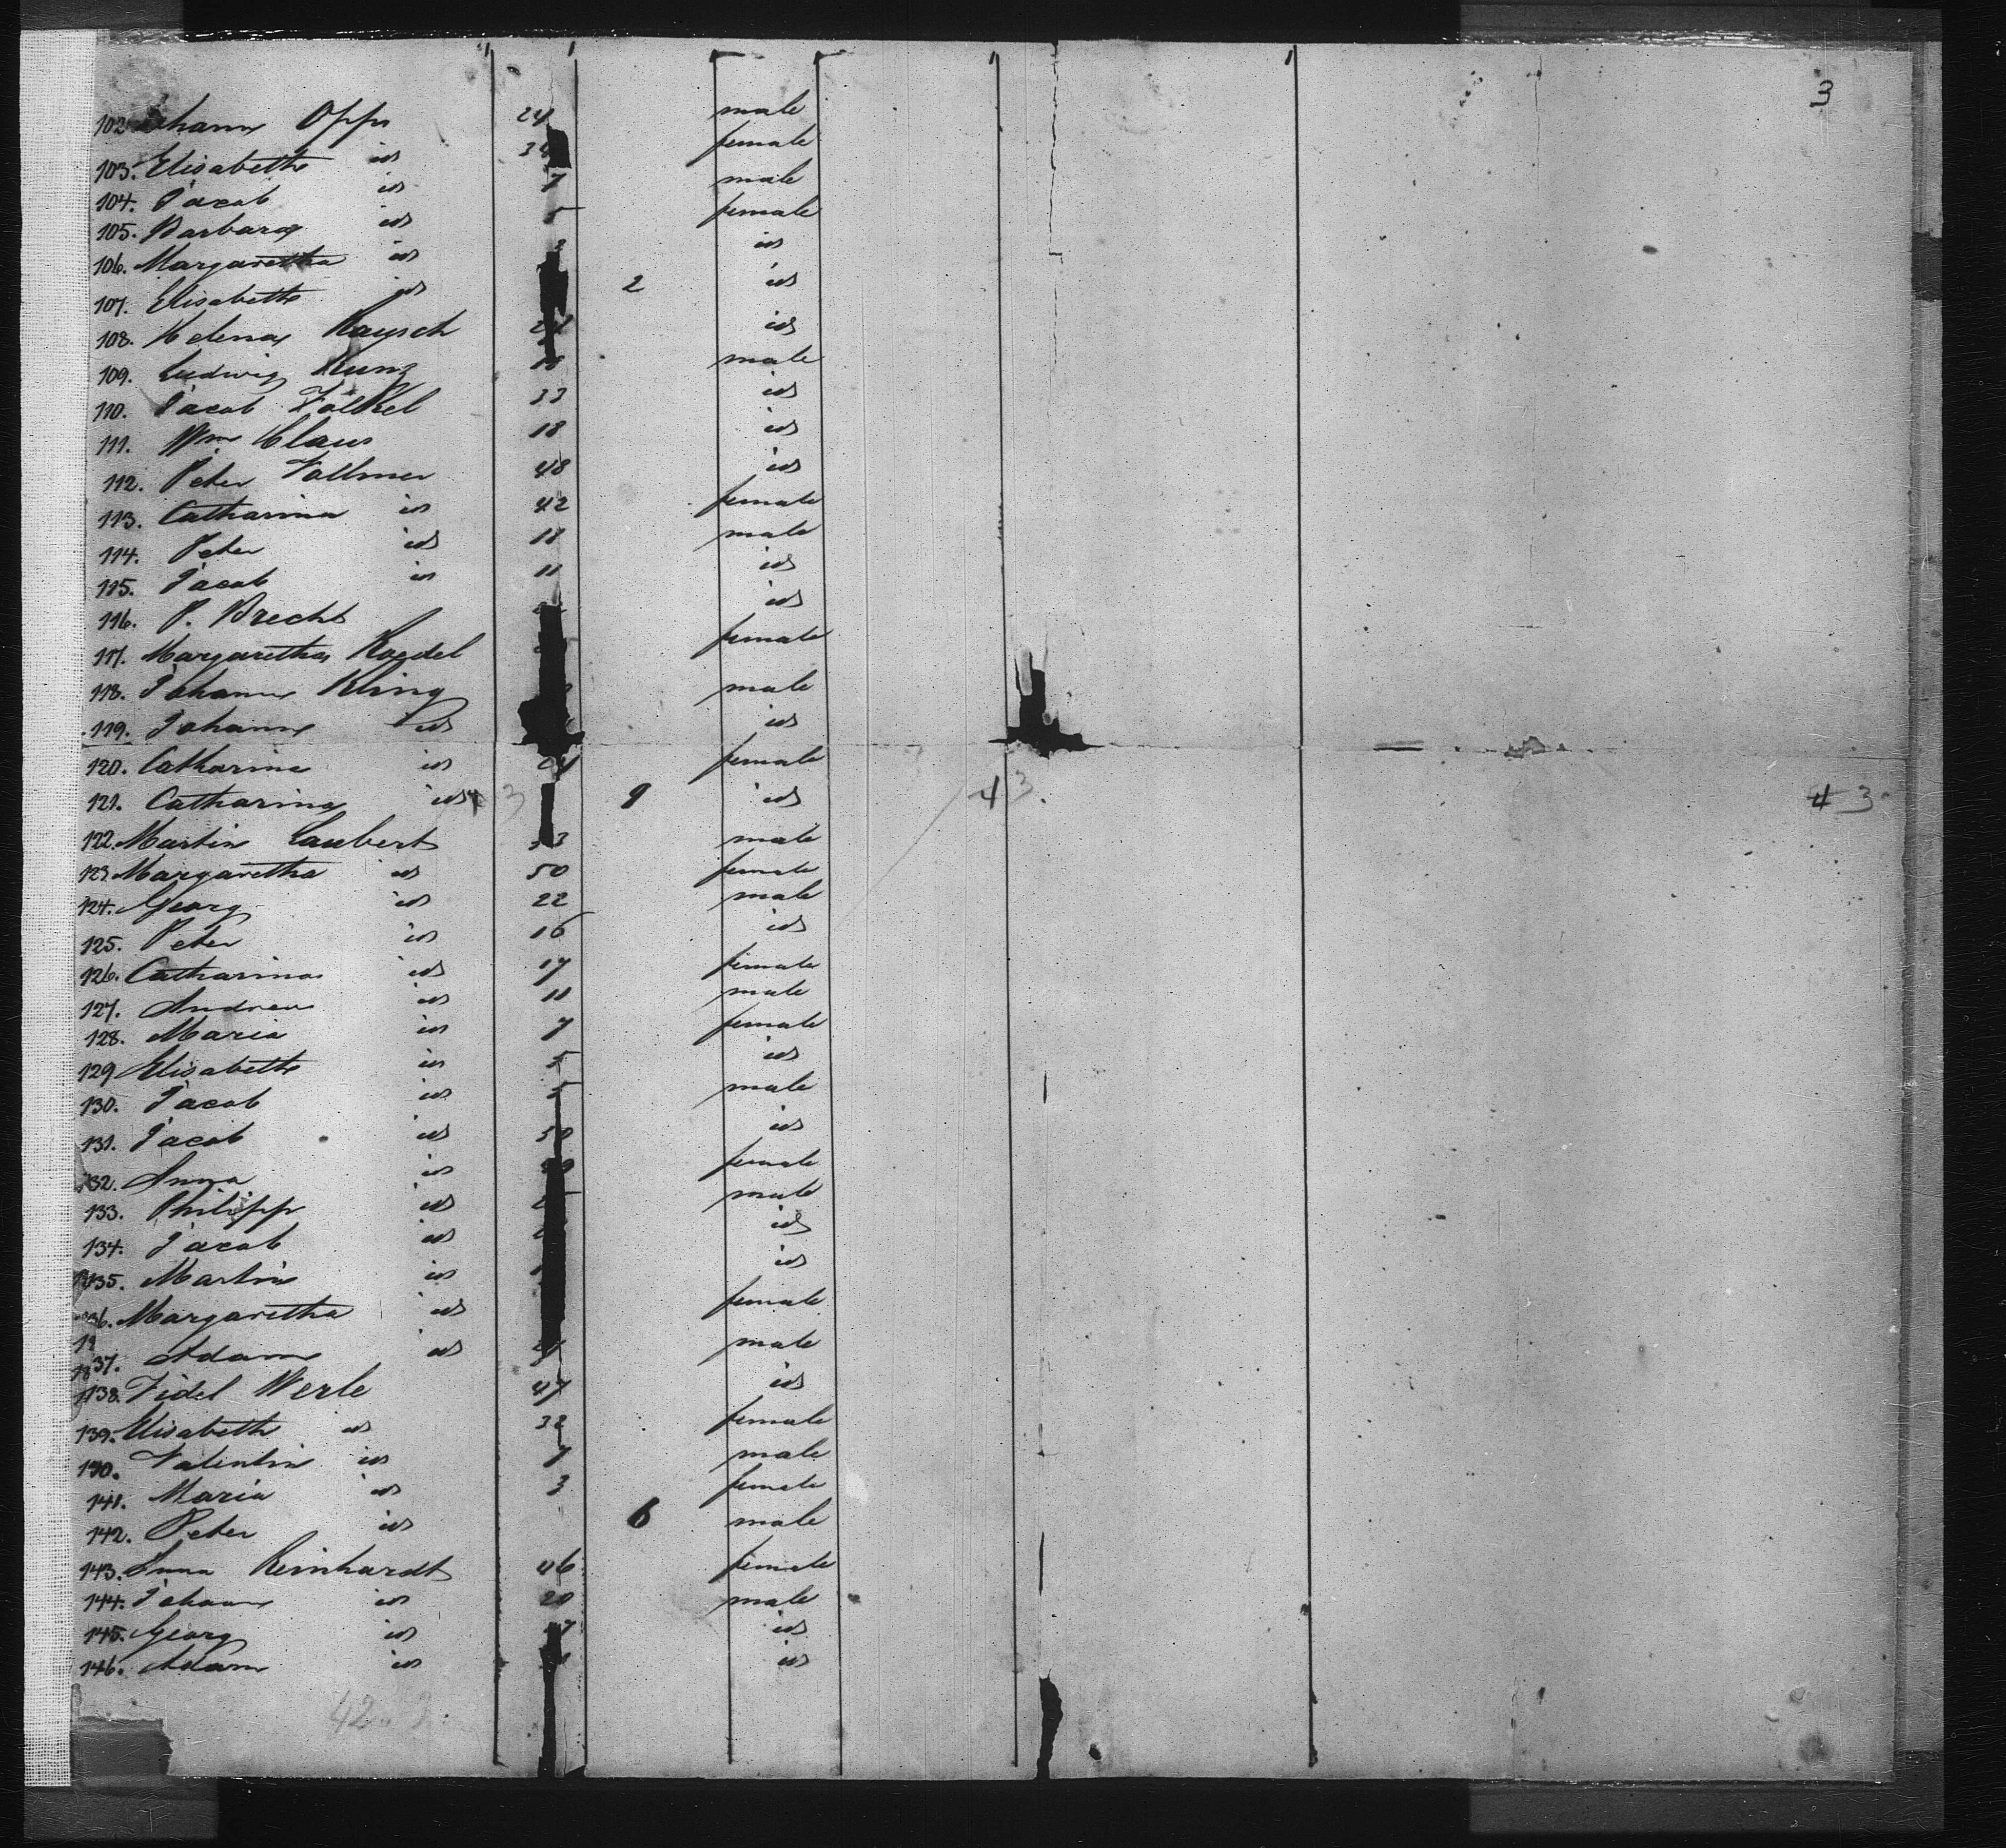 3
102. Johann Opp 24 male
103. Elisabeth id 3 female
104. Jacob id 7 male
105. Barbara id 5 female
106. Margaretha id 3 id
107. Elisabeth id 2 id
108. Helena Rausch id
109. Ludwig Kunz male
110. Jacob Völkel 33 id
111. Wm Claus 18 id
112. Peter Vollmer 48 id
113. Catharina id 42 female
114. Peter id 18 male
115. Jacob id 11 id
116. P. Brecht id
117. Margaretha Roedel female
118. Johann Kling male
119. Johann id id
120. Catharina id female
121. Catharina id 9 id
122. Martin Laubert male
123. Margaretha id 50 female
124. Georg id 22 male
125. Peter id 16 id
126. Catharina id 17 female
127. Andreas id 11 male
128. Maria id 7 female
129 Elisabeth id 5 id
130. Jacob id 5 male
131. Jacob id 50 id
132. Anna id female
133. Philipp id male
134. Jacob id id
135. Martin id id
136. Margaretha id female
137. Adam id male
138. Fidel Werle 47 id
139. Elisabeth id 32 female
140. Valentin id 7 male
141. Maria id 3 female
142. Peter id 6 male
143. Anna Reinhardt 46 female
144. Johann id 20 male
145. Georg id id
146. Adam id id